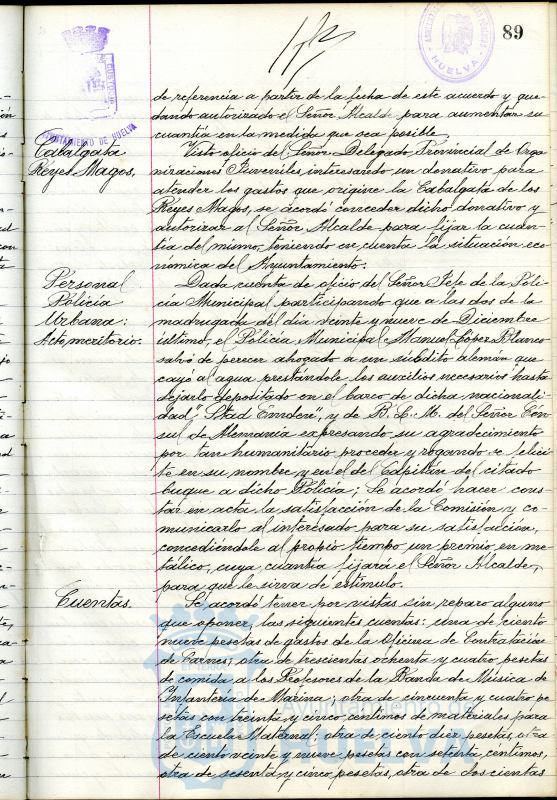 89
AYUNTAMIENTO DE HUELVA
HUELVA
de referencia a partir de la fecha de este acuerdo y que-
dando autorizado el Señor Alcalde para aumentar su
cuantía en la medida que sea posible.
Cabalgata
Reyes Magos,
Visto oficio del Señor Delegado Provincial de Orga-
nizaciones Juveniles interesando un donativo para
atender los gastos que origine la Cabalgata de los
Reyes Magos, se acordó conceder dicho donativo y
autorizar al Señor Alcalde para fijar la cuan-
tía del mismo, teniendo en cuenta la situación eco-
nómica del Ayuntamiento.
Personal
Policía
Urbana:
Acto meritorio.
Dada cuenta de oficio del Señor Jefe de la Poli-
cía Municipal participando que a las dos de la
madrugada del día veinte y nueve de Diciembre
último, el Policía Municipal Manuel López Blanco
salvó de perecer ahogado a un súbdito alemán que
cayó al agua prestándole los auxilios necesarios hasta
dejarlo depositado en el barco de dicha nacionali-
dad, y de B. L. M. del Señor Cón-
sul de Alemania expresando su agradecimiento
por tan humanitario proceder y rogando se felici-
te en su nombre y en el del Capitán del citado
buque a dicho Policía; Se acordó hacer cons-
tar en acta la satisfacción de la Comisión y co-
municarlo al interesado para su satisfacción,
concediéndole al propio tiempo un premio en me-
tálico, cuya cuantía fijará el Señor Alcalde,
para que le sirva de estímulo.
Cuentas.
Se acordó tener por vistas sin reparo alguno
que oponer, las siguientes cuentas: una de ciento
nueve pesetas de gastos de la Oficina de Contratación
de Carnes; otra de trescientas ochenta y cuatro pesetas
de comida a los Profesores de la Banda de Música de
Infantería de Marina; otra de cincuenta y cuatro pe-
setas con treinta y cinco céntimos de materiales para
la Escuela Maternal; otra de ciento diez pesetas, otra
de ciento veinte y nueve pesetas con setenta céntimos,
otra de sesenta y cinco pesetas, otra de dos cientas
Ayuntamiento de